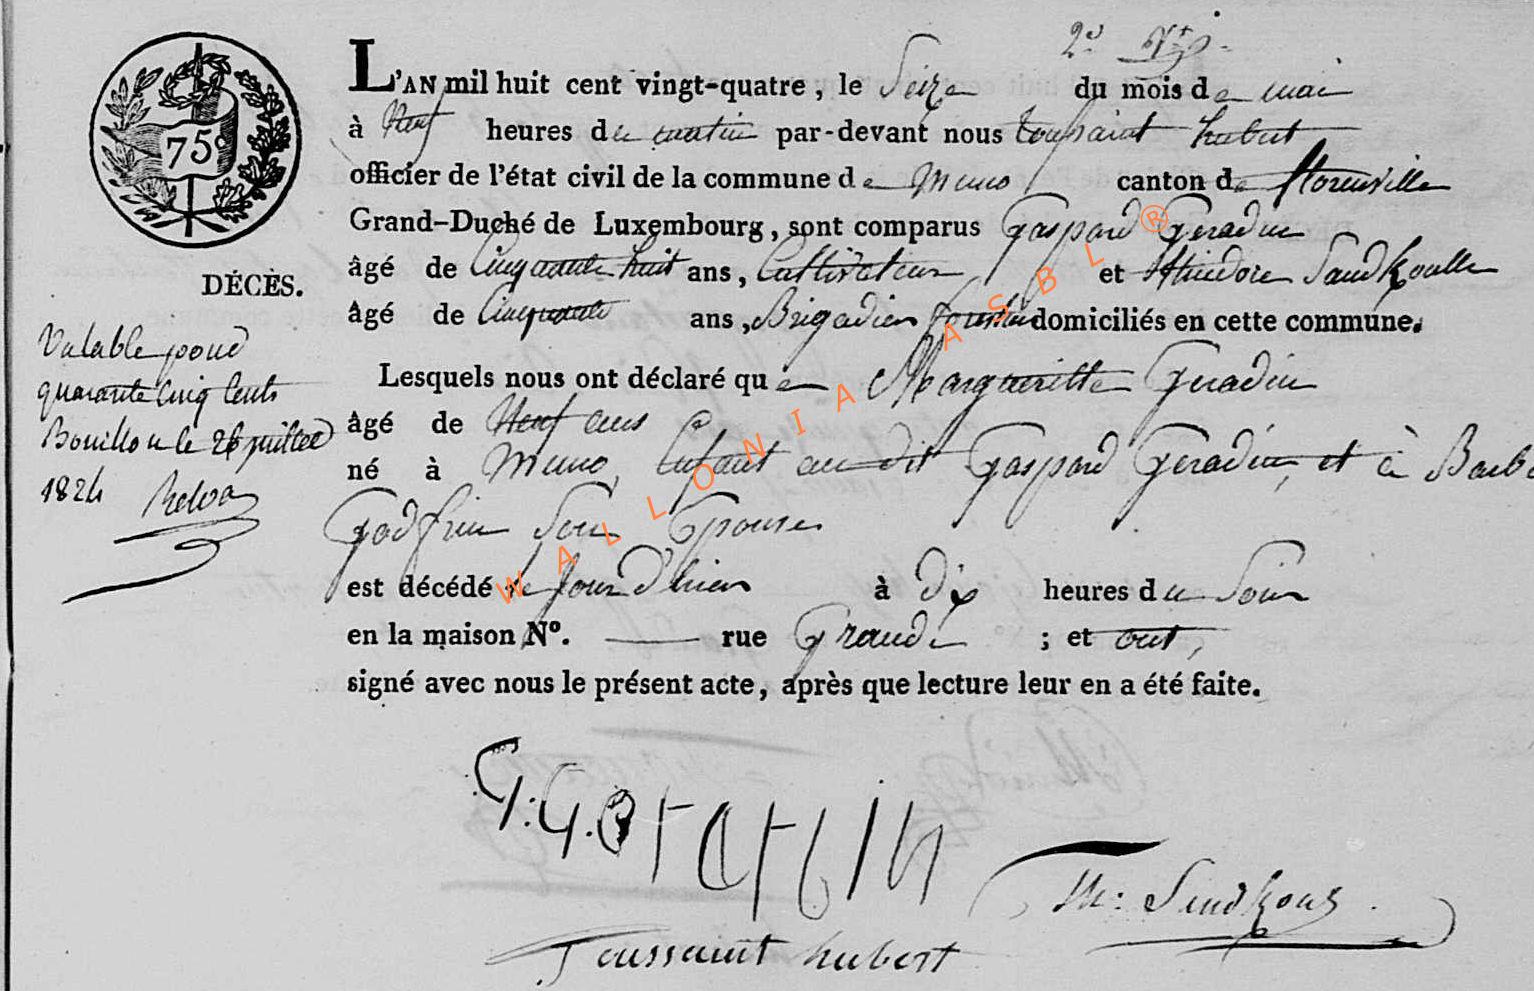 2e Vol
L'AN mil huit cent vingt-quatre, le Seize du mois de mai
à Neuf heures du matin par-devant nous toussaint hubert
officier de l'état civil de la commune de Muno canton de florenville
Grand-Duché de Luxembourg, sont comparus Gaspard Geradin
âgé de Cinquante huit ans, Cultivateur et thiedore Sandkoulle
âgé de Cinquante ans, Brigadier forestier domiciliés en cette commune.
Lesquels nous ont déclaré que Marguerittte Geradin
âgé de Neuf ans
né à Muno, Enfant au dit Gaspard Geradin, et à Barbe
Godfrin Son Epouse
est décédé le jour d'hier à dix heures du Soir
en la maison No. rue Grande ; et ont,
signé avec nous le présent acte, après que lecture leur en a été faite.
75c
DÉCÈS.
Valable pour
quarante Cinq Cents
Bouillon le 26 juillet
1824
G: G. Gerardin
Th: Sandkoul
Toussaint hubert
WALLONIA ASBL ®